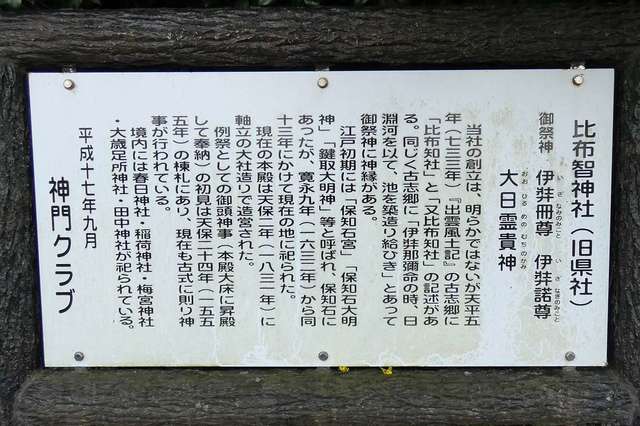 比布智神社(旧県社)
御祭神 伊弉冊尊 伊弉諾尊
いざなみのみこと いさなきのみこと
大日霊貴神
おおひるめのむちのかみ
当社の創立は、明らかではないが天平五
年(七三三年)『出雲風土記』の古志郷に
「比布知社」と「又比布知社」の記述があ
る。同じく古志郷に「伊弉那彌命の時、日
淵河を以て、池を築造り給ひき」とあって
御祭神に神縁がある。
江戸初期には「保知石宮」「保知石大明
神」「鍵取大明神」等と呼ばれ、保知石に
あったが、寛永九年(一六三二年)から同
十三年にかけて現在の地に祀られた。
現在の本殿は天保二年(一八三一年)に
軸立の大社造りで造営された。
例祭としての御頭神事(本殿大床に昇殿
して奉納)の初見は天保二十四年(一五五
五年)の棟札にあり、現在も古式に則り神
事が行われている。
境内には春日神社・稲荷神社・梅宮神社
・大歳足所神社・田中神社が祀られている。
平成十七年九月
神門クラブ